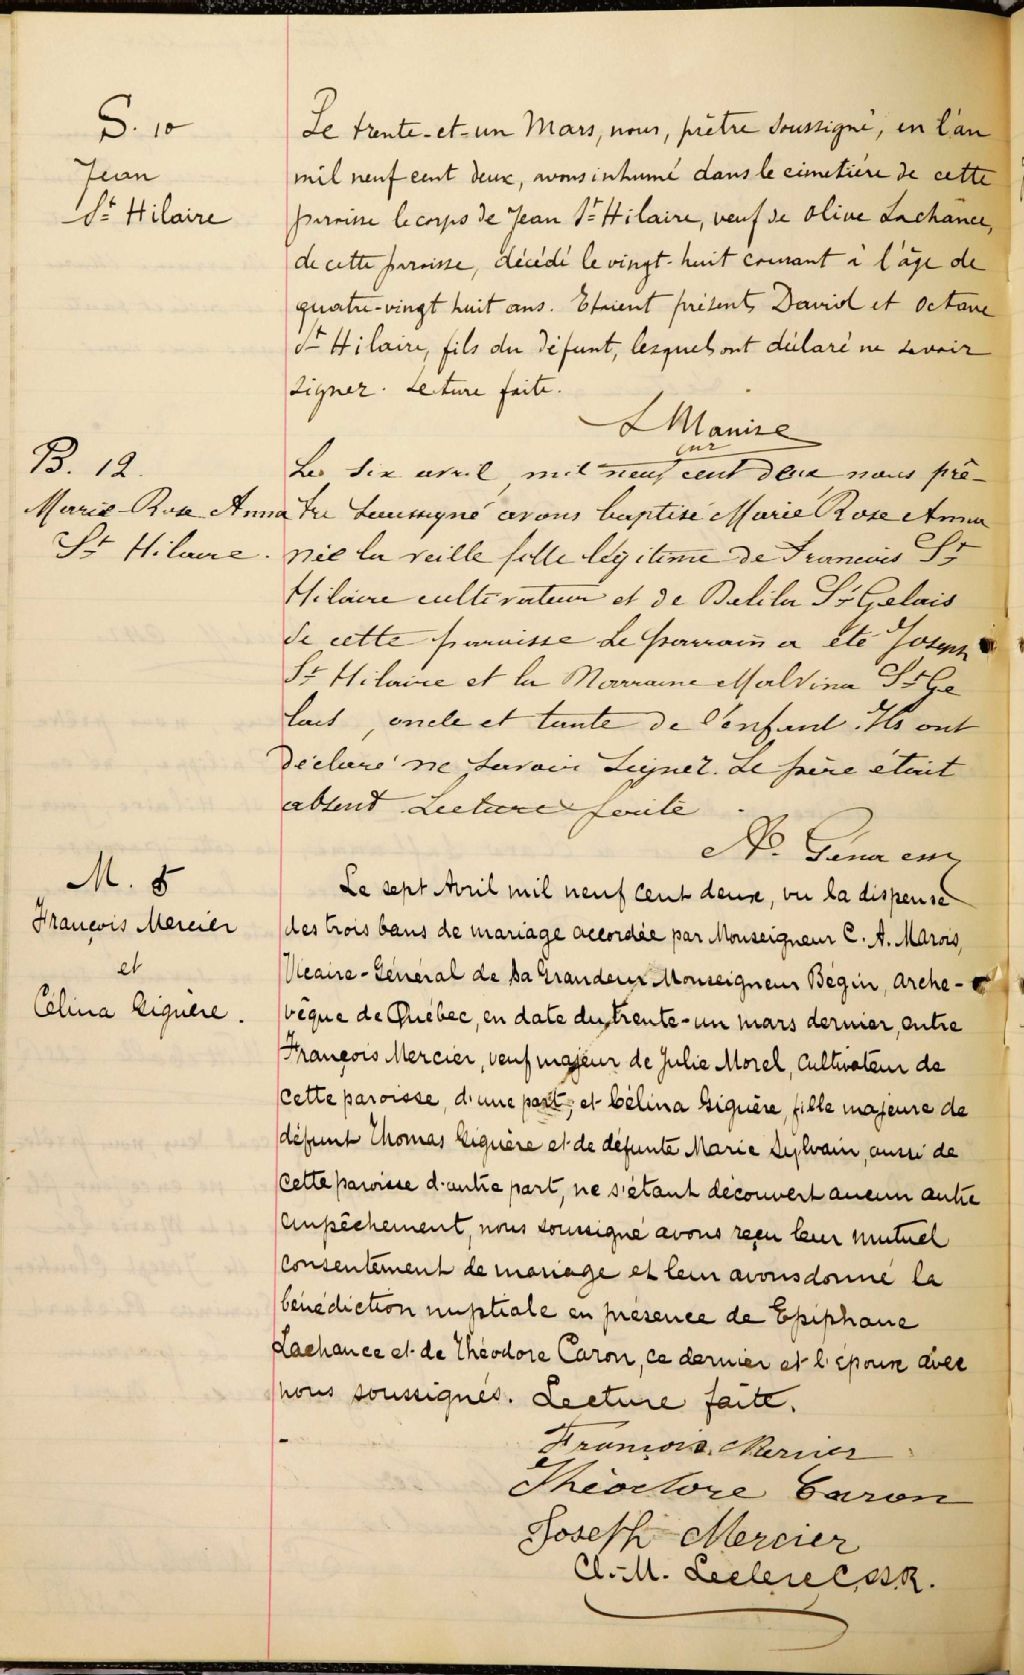 S. 10
Jean
St Hilaire
Le trente-et-un Mars, nous, prêtre soussigné, en l'an
mil neuf cent deux, avons inhumé dans le cimetière de cette
paroisse le corps de Jean St Hilaire, veuf de Olive Lachance,
de cette paroisse, décédé le vingt-huit courant à l'âge de
quatre-vingt huit ans. Etaient présents David et Octave
St Hilaire, fils du défunt, lesquels ont déclaré ne savoir
signer. Lecture faite.
B. 12.
Marie-Rose Anna
St Hilaire.
Le six avril, mil neuf cent deux nous prê-
tre soussigné avons baptisé Marie Rose Anna
née la veille fille légitime de Francois St
Hilaire cultivateur et de Delila St Gelais
de cette paroisse Le parrain a été Joseph
St Hilaire et la Marraine Malvina St Ge
lais, oncle et tante de l'enfant. Ils ont
déclaré ne savoir signer. Le père était
absent Lecture faite
M. 5
François Mercier
et
Célina Giguère.
Le sept Avril mil neuf cent deux, vu la dispense
des trois bans de mariage accordée par Monseigneur C. A. Marois,
Vicaire-Général de Sa Grandeur Monseigneur Bégin, arche-
vêque de Québec, en date du trente-un mars dernier, entre
François Mercier, veuf majeur de Julie Morel, cultivateur de
cette paroisse, d'une part, et Célina Giguère, fille majeure de
défunt Thomas Giguère et de défunte Marie Sylvain, aussi de
cette paroisse d'autre part, ne s'étant découvert aucun autre
empêchement, nous soussigné avons reçu leur mutuel
consentement de mariage et leur avons donné la
bénédiction nuptiale en présence de Epiphane
Lachance et de Théodore Caron, ce dernier et l'époux avec
nous soussignés. Lecture faite.
François Mercier
Théodore Caron
Joseph Mercier
Cl.-M. Leclerc C.SS.R.